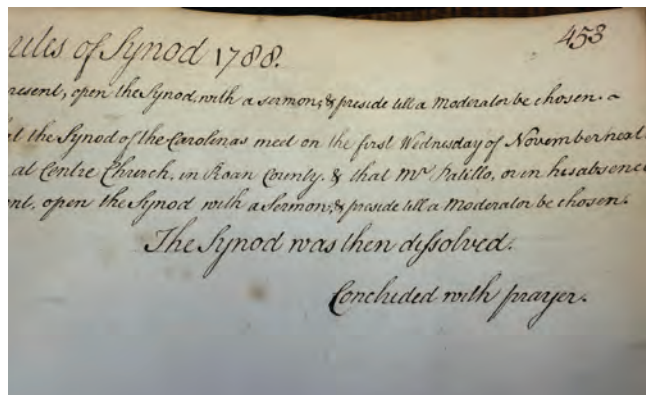 ules of Synod 1788.
453
resent, open the Synod, with a sermon, & preside till a Moderator be chosen. ~
at the Synod of the Carolinas meet on the first Wednesday of November next
at Centre Church, in Roan County. & that Mr. Patillo, or in his absence
ent, open the Synod with a Sermon, & preside till a Moderator be chosen.
The Synod was then dissolved.
Concluded with prayer.